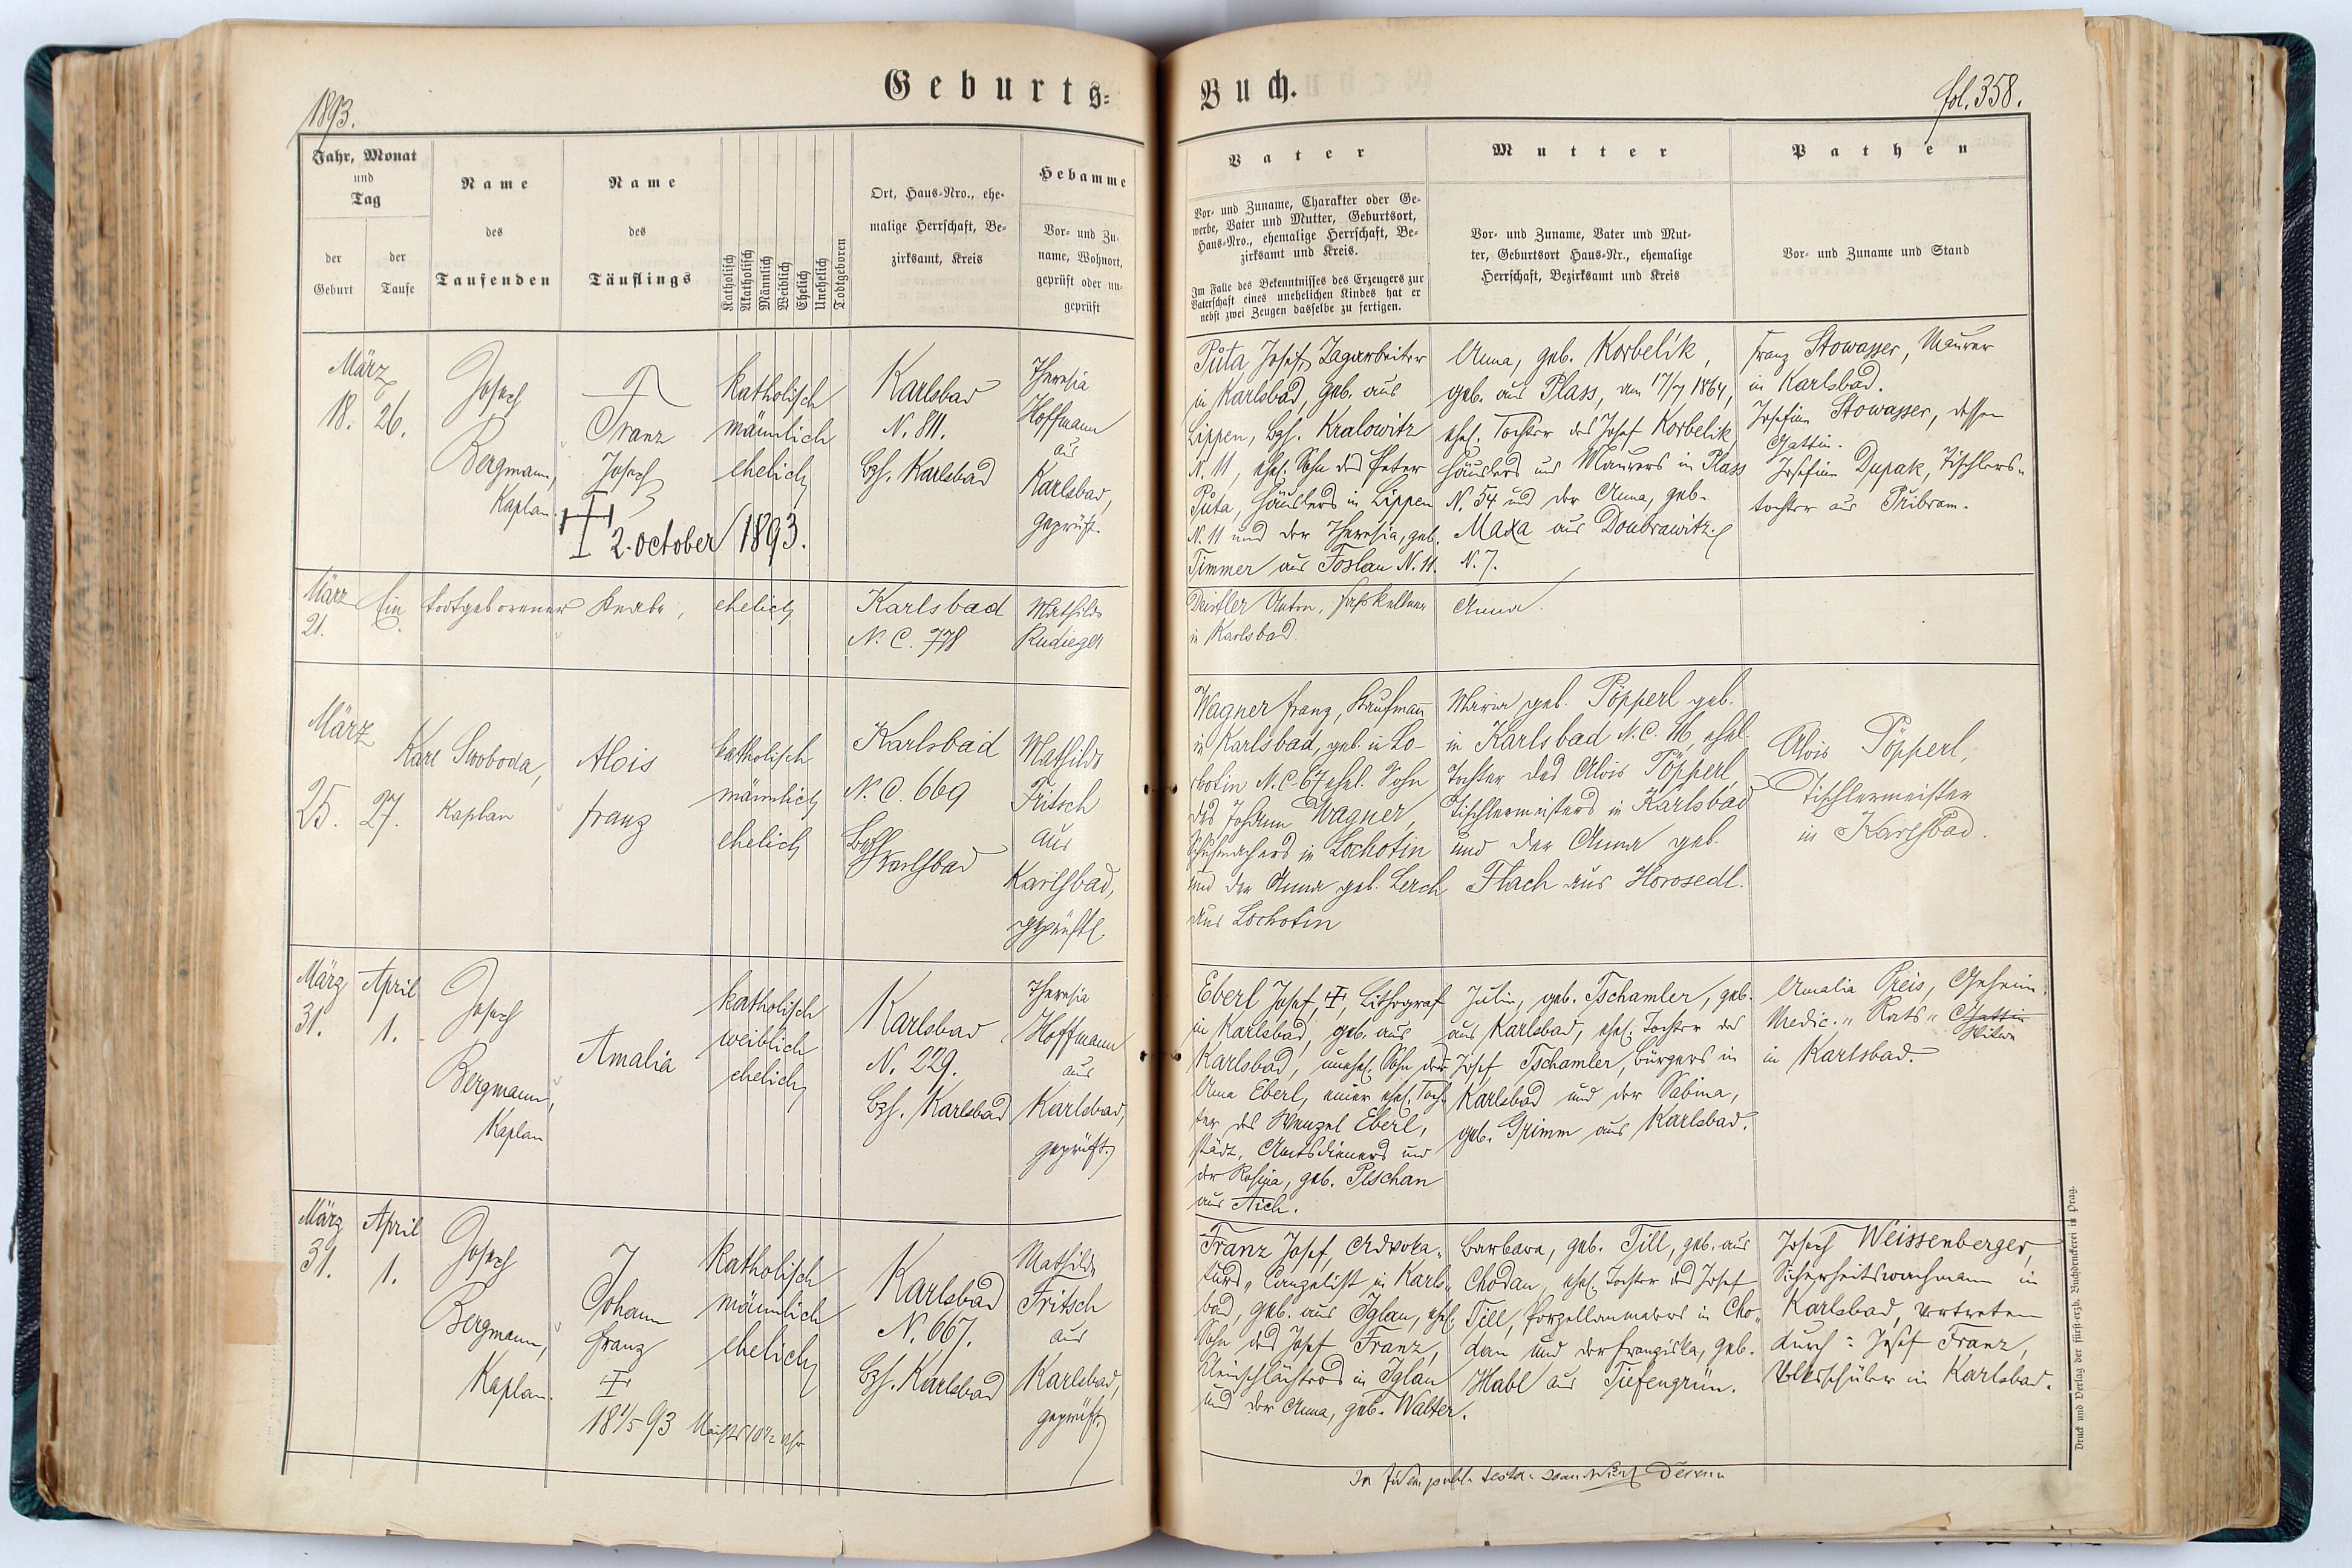 1893.
Geburts-
Jahr, Monat
und
Tag
der
Geburt
der
Taufe
Name
des
Taufenden
Name
des
Täuflings
Katholisch
Akatholisch
Männlich
Weiblich
Ehelich
Unehelich
Todtgeboren
Ort, Haus-Nro., ehe-
malige Herrschaft, Be-
zirksamt, Kreis
Hebamme
Vor- und Zu-
name, Wohnort,
geprüft oder un-
geprüft
März
18. 26.
Josef
Bergmann,
Kaplan.
Franz
Josef
2. October 1893.
katholisch
männlich
ehelich
Karlsbad
N. 811.
Bzh. Karlsbad
Theresia
Hoffmann
aus
Karlsbad,
geprüft.
März
21.
Ein todtgeborener Knabe,
ehelich
Karlsbad
N. C. 778
Mathilde
Rudieger
März
25. 27.
Karl Swoboda,
Kaplan
Alois
Franz
katholisch
männlich
ehelich
Karlsbad
N. C. 669
Bzh Karlsbad
Mathilde
Fritsch
aus
Karlsbad,
geprüft
März
31.
April
1.
Josef
Bergmann,
Kaplan
Amalia
katholisch
weiblich
ehelich
Karlsbad
N. 229.
Bzh. Karlsbad
Theresia
Hoffmann
aus
Karlsbad,
geprüft.
März
31.
April
1.
Josef
Bergmann,
Kaplan.
Johann
Franz
18 1/5 93
katholisch
männlich
ehelich
Karlsbad
N. 667.
Bzh. Karlsbad
Mathilde
Fritsch
aus
Karlsbad,
geprüft.
Buch.
fol. 358.
Vater
Vor- und Zuname, Charakter oder Ge-
werbe, Vater und Mutter, Geburtsort,
Haus-Nro., ehemalige Herrschaft, Be-
zirksamt und Kreis.
Im Falle des Bekenntnisses des Erzeugers zur
Vaterschaft eines unehelichen Kindes hat er
nebst zwei Zeugen dasselbe zu fertigen.
Mutter
Vor- und Zuname, Vater und Mut-
ter, Geburtsort Haus-Nr., ehemalige
Herrschaft, Bezirksamt und Kreis
Pathen
Vor- und Zuname und Stand
Půta Josef, Tagarbeiter
in Karlsbad, geb. aus
Lippen, Bzh. Kralowitz
N. 11, ehel. Sohn des Peter
Půta, Häuslers in Lippen
N. 11 und der Theresia, geb.
Timmer aus Foslau N. 11.
Anna, geb. Korbelik,
geb. aus Plass, am 17/7 1864,
ehel. Tochter des Josef Korbelik
Häuslers und Maurers in Plass
N. 54 und der Anna, geb.
Maxa aus Doubrawitz
N. 7.
Franz Stowasser, Maurer
in Karlsbad.
Josefine Stowasser, dessen
Gattin.
Josefine Dupak, Tischlers-
tochter aus Pribram.
Deistler Anton, Faßkellner
in Karlsbad.
Anna.
Wagner Franz, Kaufmann
in Karlsbad, geb. in Lo-
chotin N. C. 67 ehel. Sohn
des Johann Wagner,
Schuhmachers in Lochotin
und der Anna geb. Lerch
aus Lochotin
Maria geb. Pöpperl geb.
in Karlsbad N. C. ehel.
Tochter des Alois Pöpperl
Tischlermeisters in Karlsbad
und der Anna geb.
Flach aus Horosedl.
Alois Pöpperl,
Tischlermeister
in Karlsbad.
Eberl Josef, Lithograf
in Karlsbad, geb. aus
Karlsbad, unehel. Sohn der
Anna Eberl, einer ehel. Toch-
ter des Wenzel Eberl,
städt. Amtsdieners und
der Rosina, geb. Peschan
aus Aich.
Julie, geb. Tschamler, geb.
aus Karlsbad, ehel. Tochter des
Josef Tschamler, Bürgers in
Karlsbad und der Sabina,
geb. Grimm aus Karlsbad.
Amalia Preis, Geheim.
Medic. Rats Gattin
Witwe
in Karlsbad.
Franz Josef, Advoka-
turs-Canzelist in Karls-
bad, geb. aus Iglau, ehel.
Sohn des Josef Franz,
in Iglau
und der Anna, geb. Walter.
Barbara, geb. Till, geb. aus
Chodau, ehel. Tochter des Josef
Till, Porzellanmalers in Cho-
dau und der Franziska, geb.
Habl aus Tiefengrün.
Josef Weissenberger,
Sicherheitswachmann in
Karlsbad, vertreten
durch: Josef Franz,
Volksschüler in Karlsbad.
Druck und Verlag der fürst-erzb. Buchdruckerei in Prag.